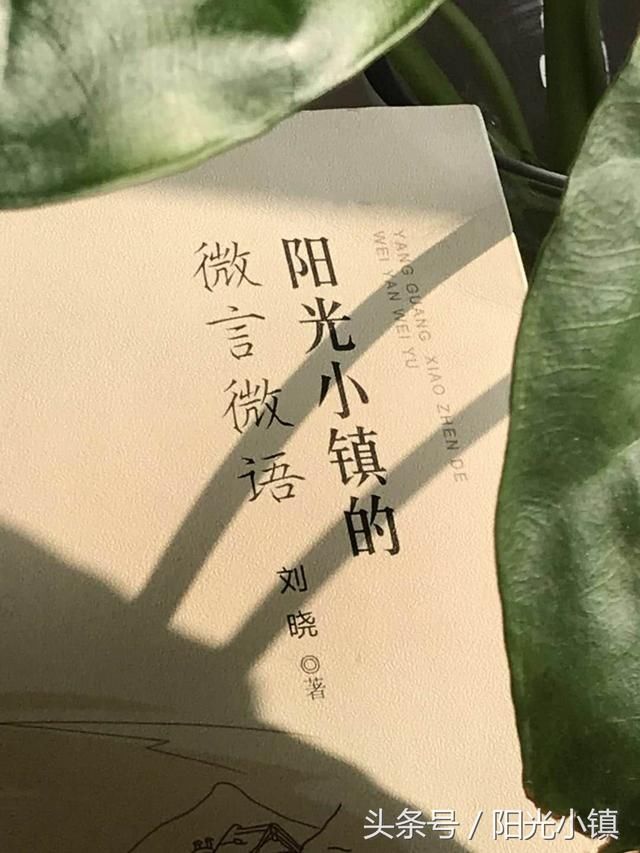 YANG GUANG XIAO ZHEN DE
WEI YAN WEI YU
阳光小镇的
微言微语
刘晓◎著
头条号 / 阳光小镇